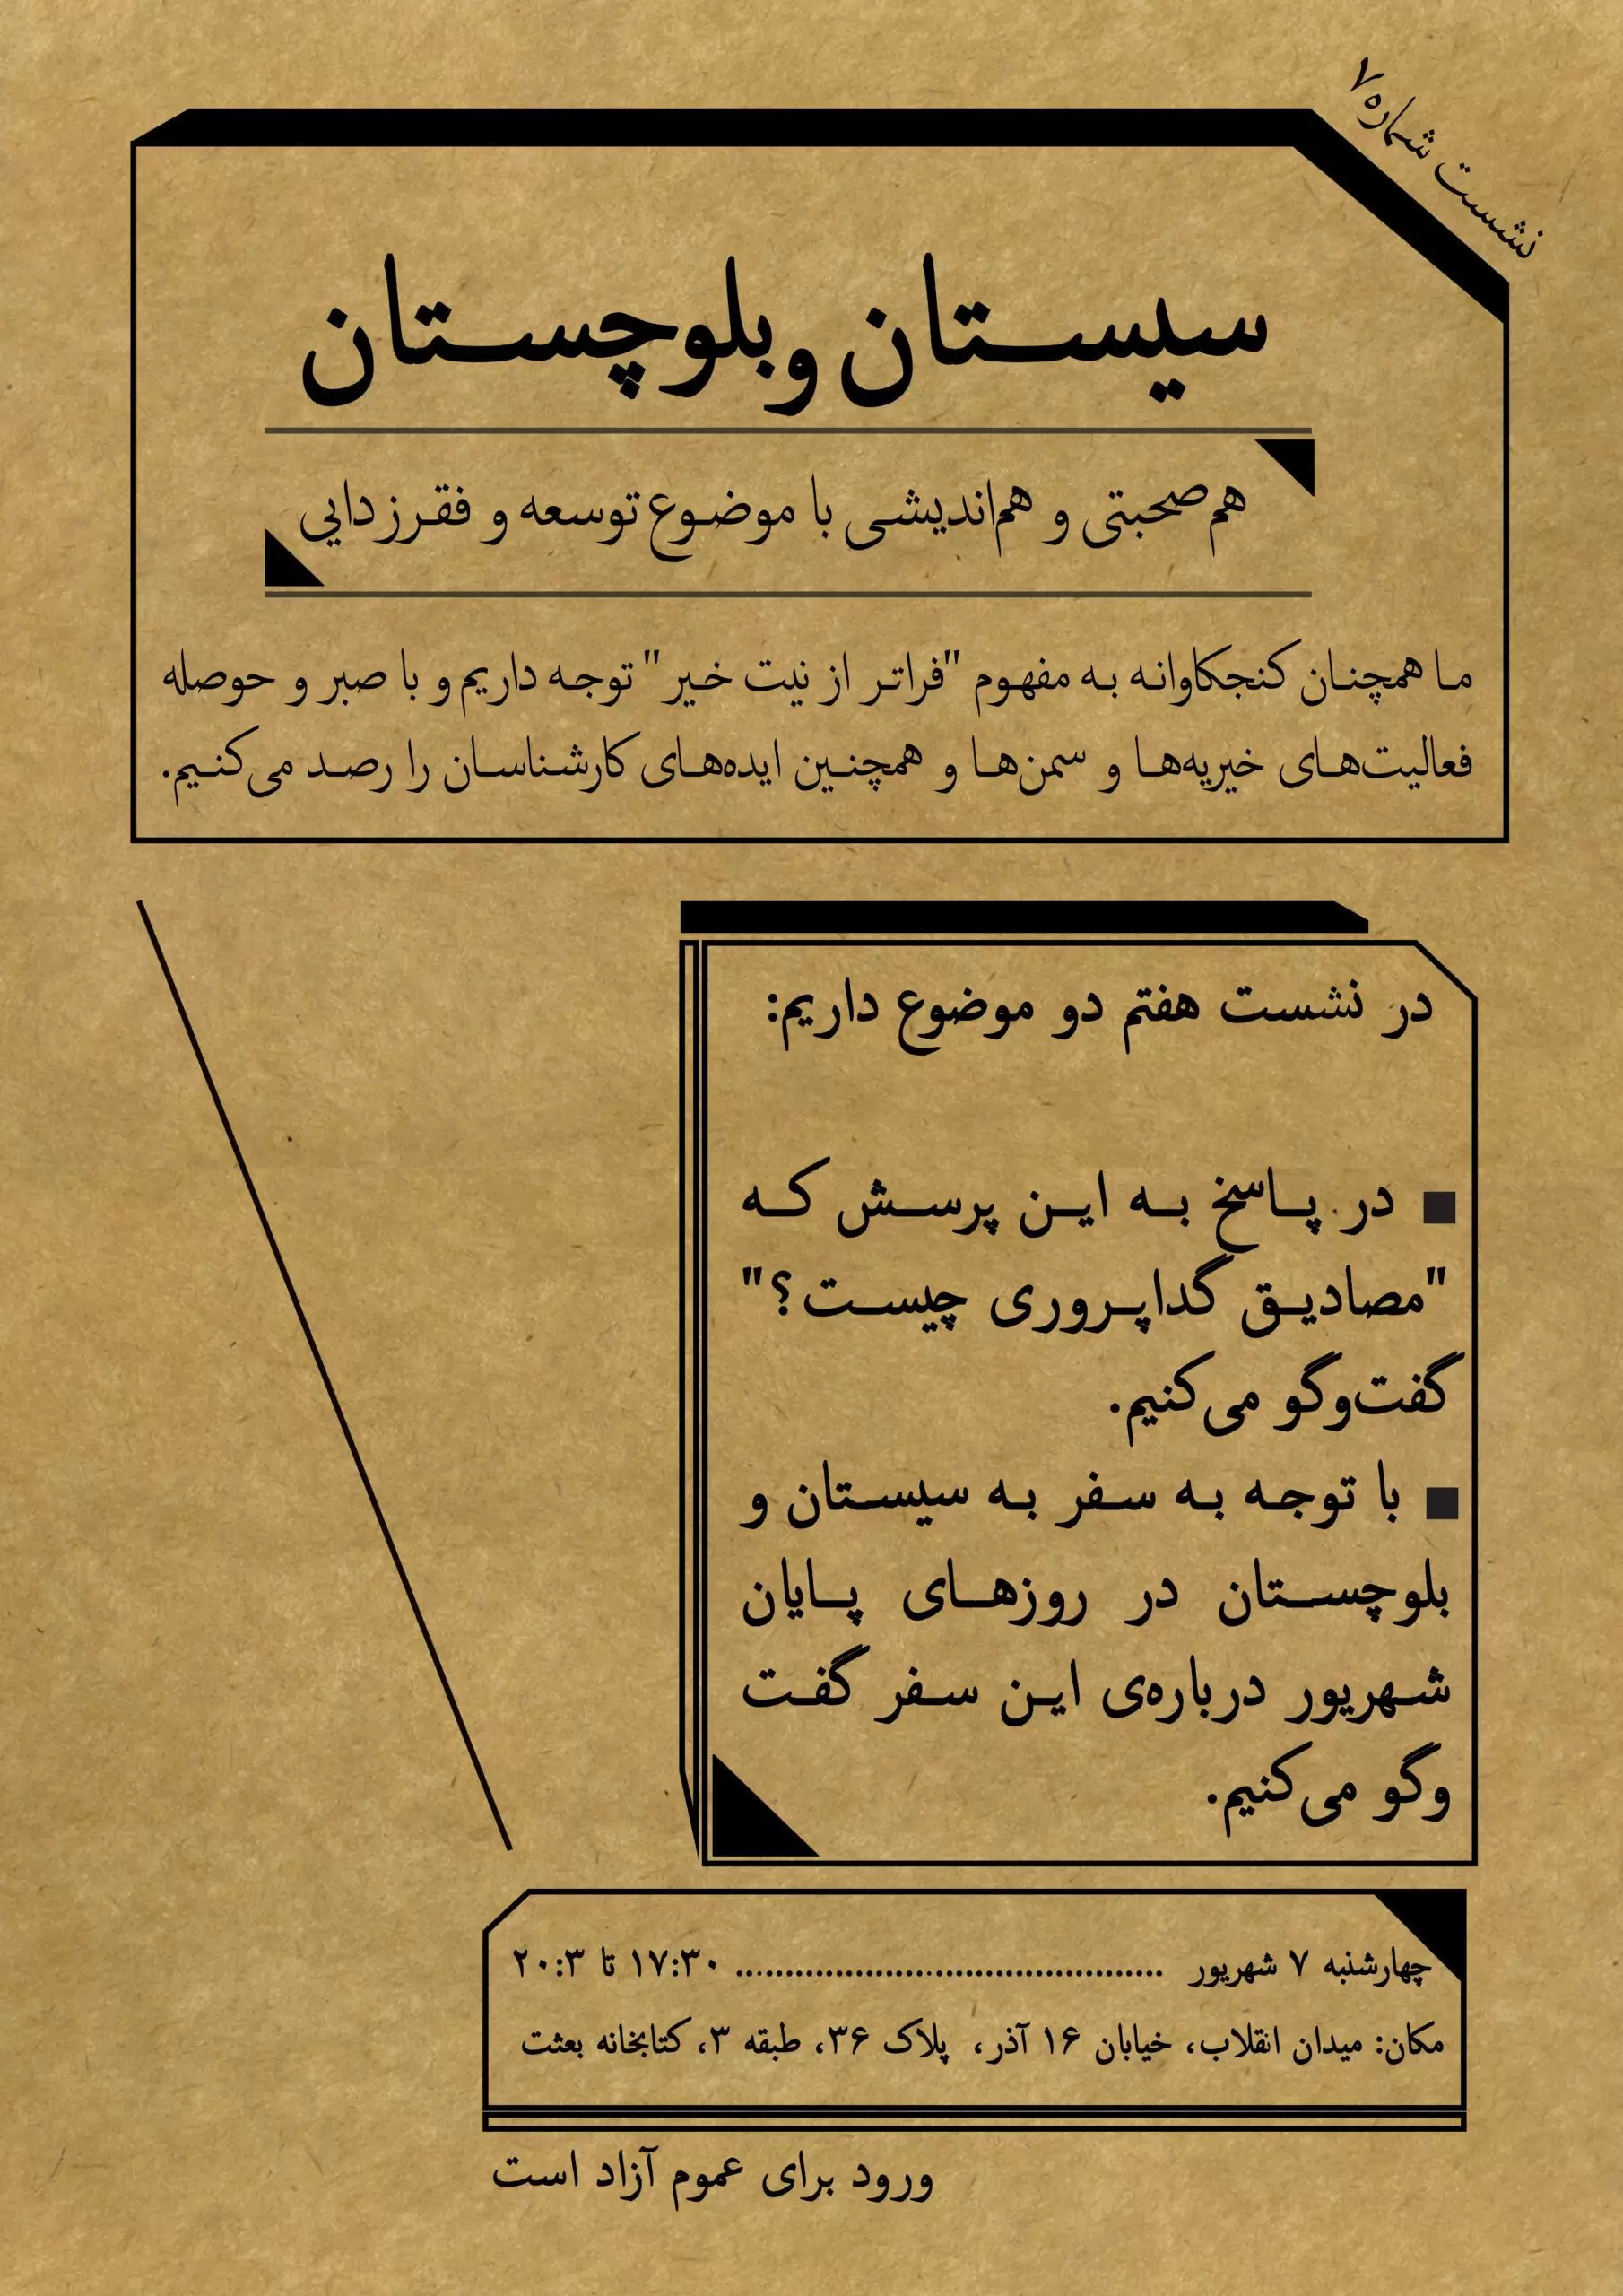 نشست شماره ۷
سیستان و بلوچستان
هم‌صحبتی و هم‌اندیشی با موضوع توسعه و فقرزدایی
ما همچنان کنجکاوانه به مفهوم "فراتر از نیت خیر" توجه داریم و با صبر و حوصله
فعالیت‌های خیریه‌ها و سمن‌ها و همچنین ایده‌های کارشناسان را رصد می‌کنیم.
در نشست هفتم دو موضوع داریم:
■ در پاسخ به این پرسش که
"مصادیق گداپروری چیست؟"
گفت‌وگو می‌کنیم.
■ با توجه به سفر به سیستان و
بلوچستان در روزهای پایان
شهریور درباره‌ی این سفر گفت
وگو می‌کنیم.
چهارشنبه ۷ شهریور ........................................... ۱۷:۳۰ تا ۲۰:۳
مکان: میدان انقلاب، خیابان ۱۶ آذر، پلاک ۳۶، طبقه ۳، کتابخانه بعثت
ورود برای عموم آزاد است